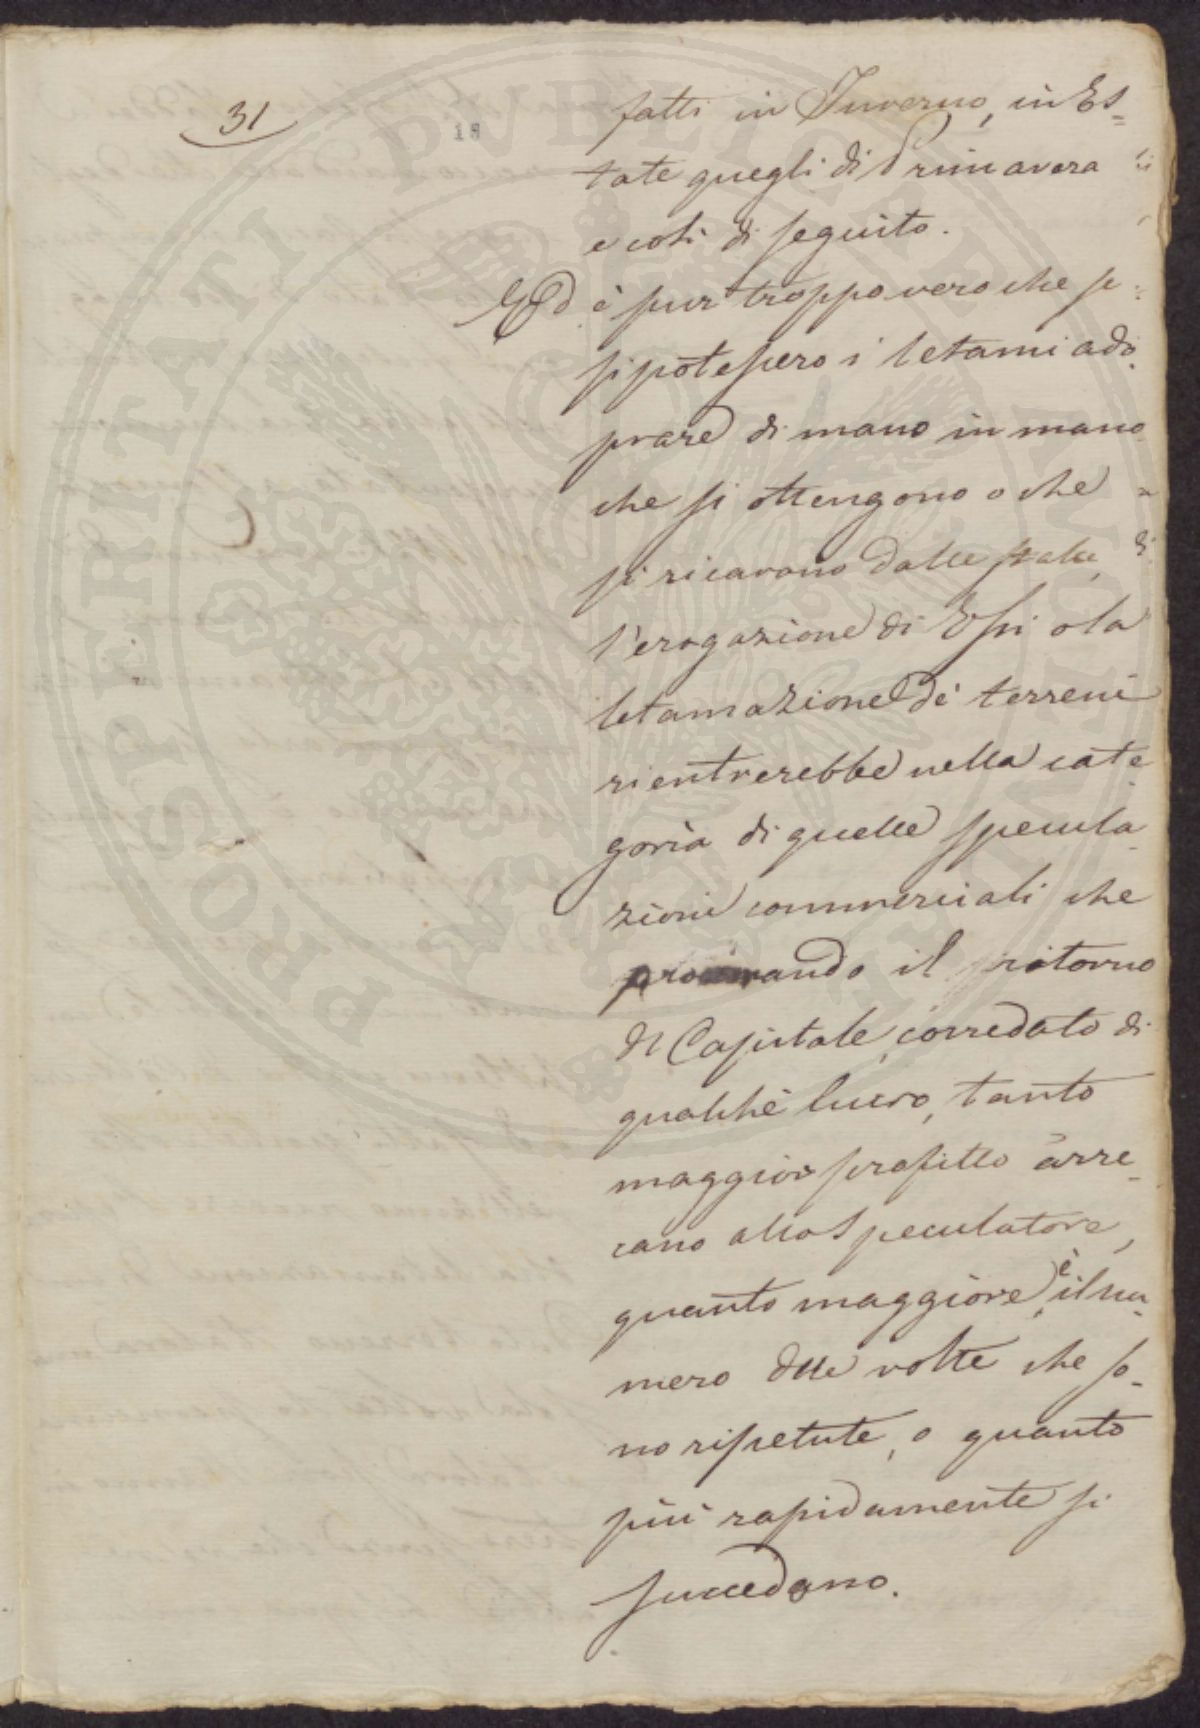 31
18
fatti in Inverno, in Es=
tate quegli di Primavera
e così di seguito.
Ed è pur troppo vero che se
si potessero i letami ado
prare di mano in mano
che si ottengono o che
si ricavano dalle stalle,
l'erogazione di Essi o la
letamazione de' terreni
rientrerebbe nella cate
goria di quelle specula
zioni commerciali che
procurando il ritorno
del Capitale, corredato di
qualche lucro, tanto
maggior profitto arre
cano allo Speculatore,
quanto maggiore è il nu
mero delle volte che so
no ripetute, o quanto
più rapidamente si
succedono.
PROSPERITATI PUBLICAE AUGENDAE